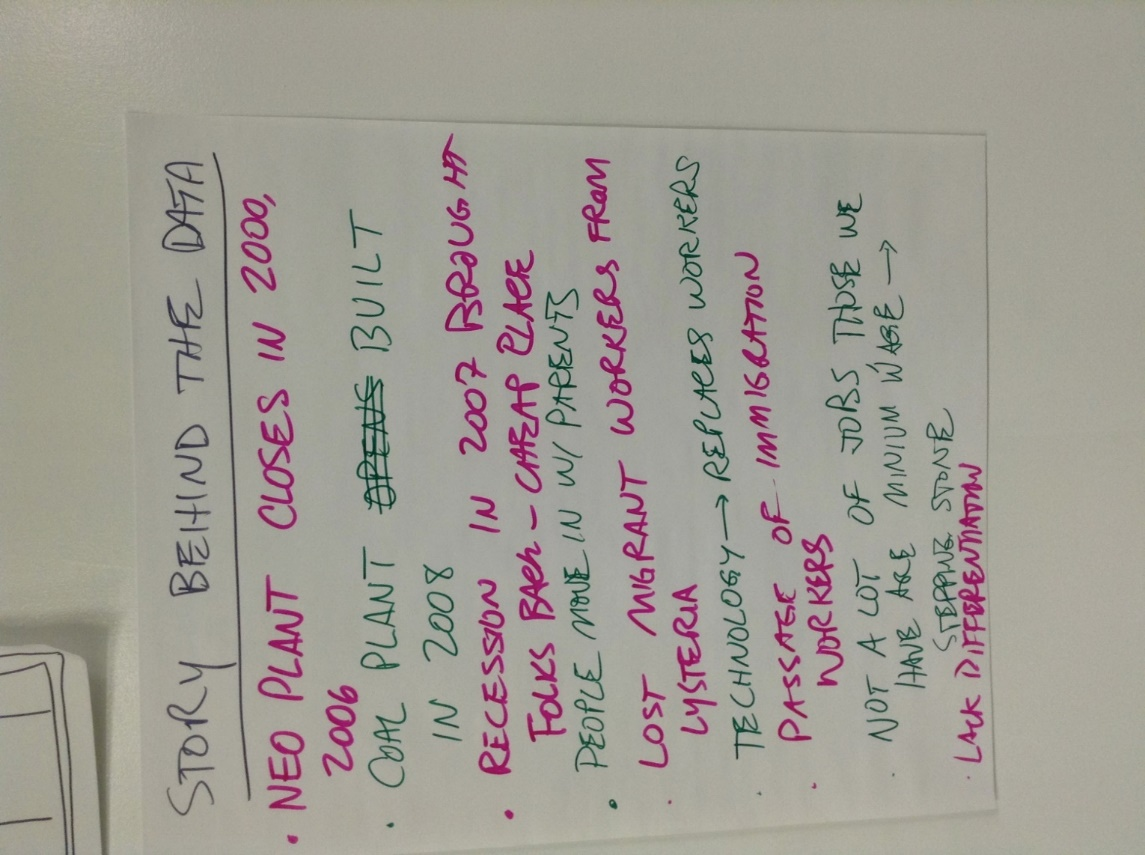 STORY BEHIND THE DATA
• NEO PLANT CLOSES IN 2000,
2006
• COAL PLANT OPENS BUILT
IN 2008
• RECESSION IN 2007 BROUGHT
FOLKS BACK - CHEAP PLACE
• PEOPLE MOVE IN W/ PARENTS
• LOST MIGRANT WORKERS FROM
LYSTERIA
• TECHNOLOGY → REPLACES WORKERS
• PASSAGE OF IMMIGRATION
WORKERS
• NOT A LOT OF JOBS THOSE WE
HAVE ARE MINIUM WAGE →
STEPPING STONE
• LACK DIFFERENTIATION